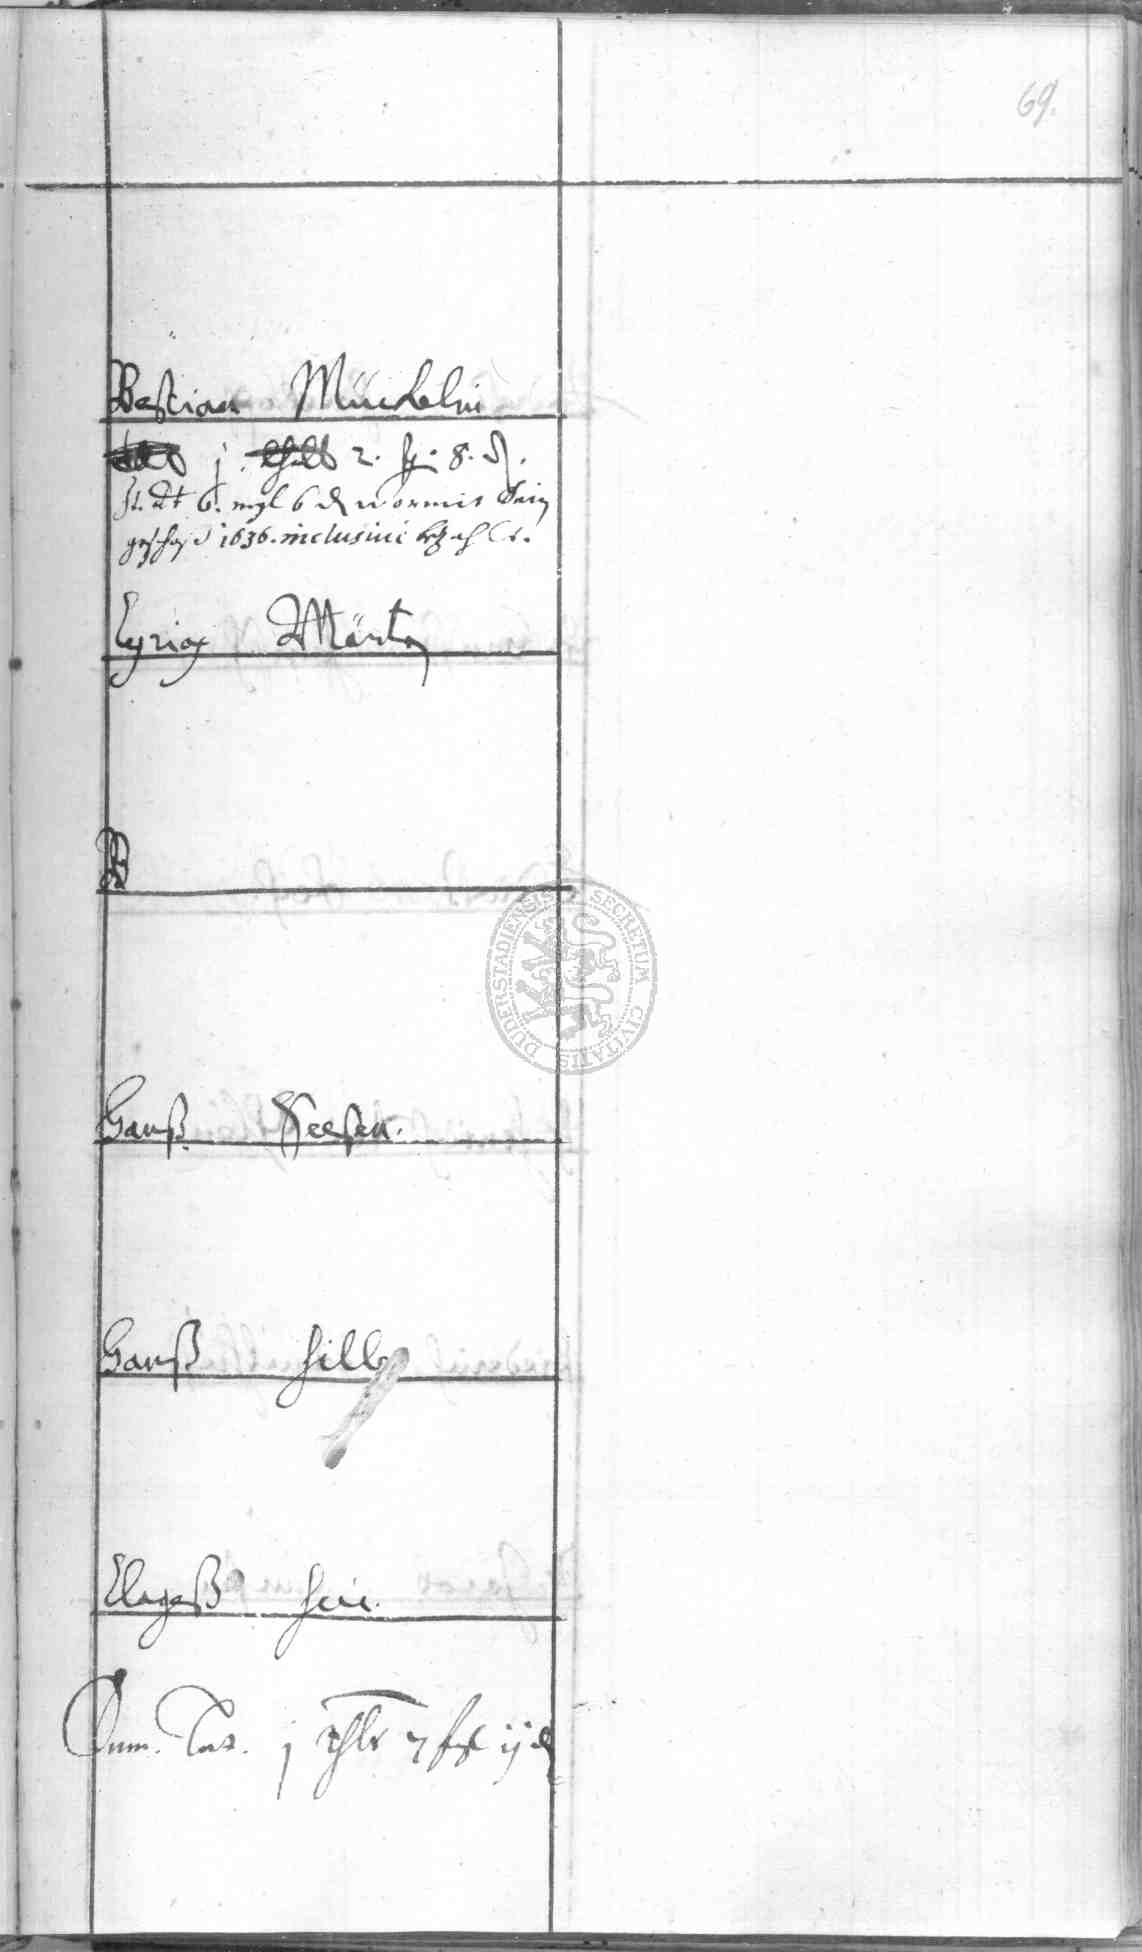 69.
Bastian Münchelm
j 2. ß. 8. d.
6. mgl 6 d wormit sein
geschoß 1636. inclusive bezahlt.
Cyriax Märten
B
Hanß Neesen.
Hanß Hille
Clageß Hein.
Sum. Lat. j thlr 7 ßgl ij d
SECRETUM CIVITATIS DUDERSTADIENSIS